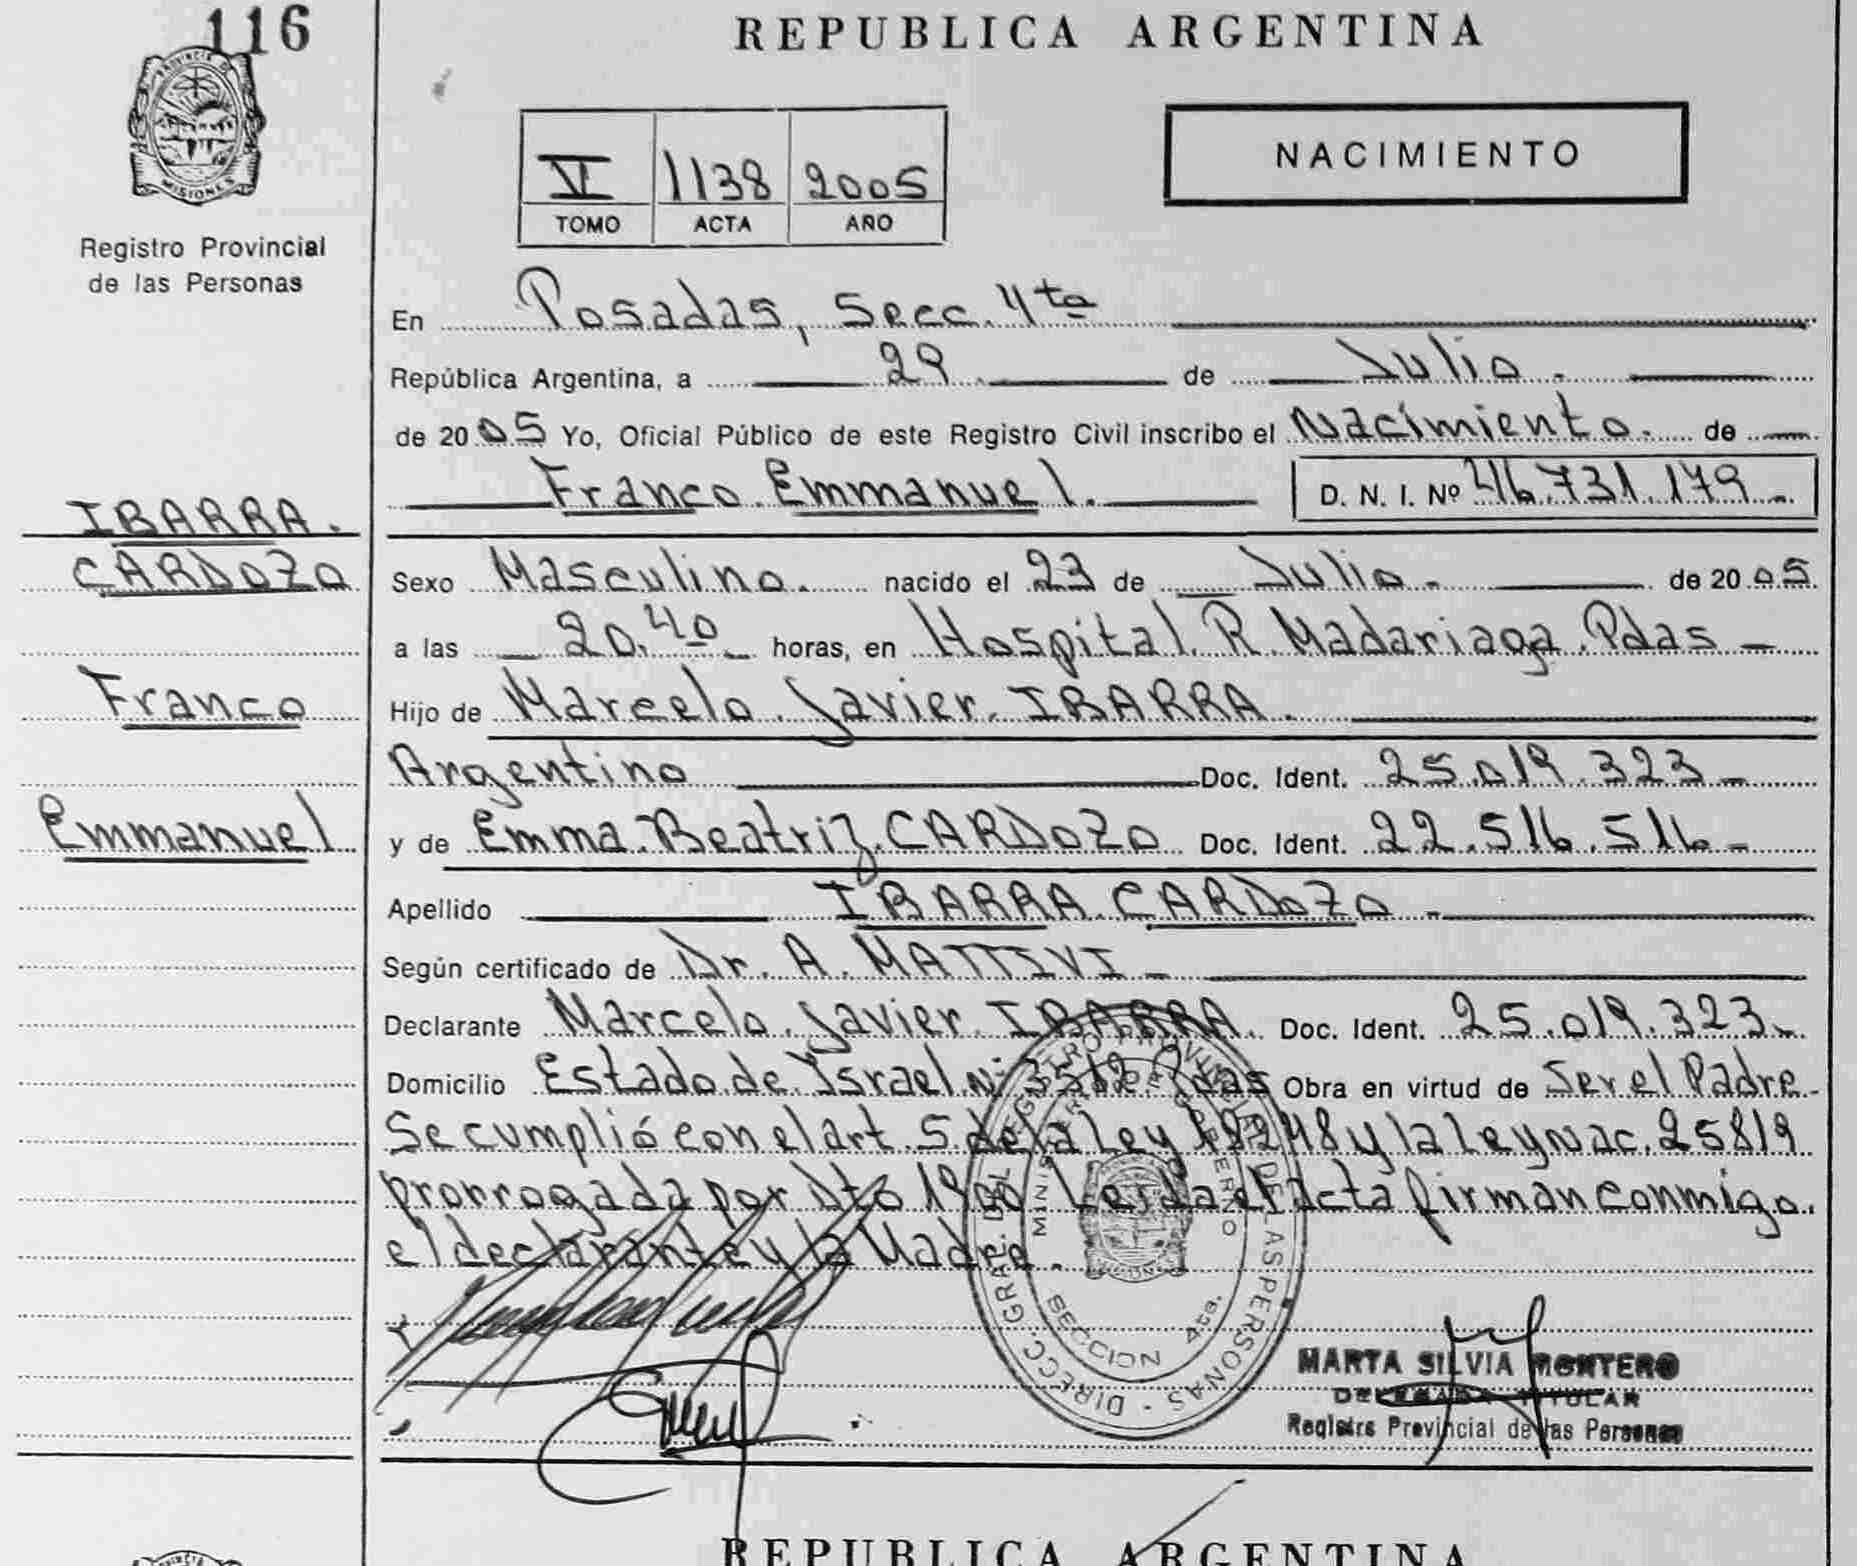 116
REPUBLICA ARGENTINA
PROVINCIA DE
MISIONES
Registro Provincial
de las Personas
VI 1138 2005
TOMO ACTA AÑO
NACIMIENTO
En Posadas, Secc. 4ta
República Argentina, a 29 de Julio.
de 2005 Yo, Oficial Público de este Registro Civil inscribo el Nacimiento. de
Franco Emmanuel. D. N. I. Nº 46.731.179
IBARRA.
CARDOZO
Franco
Emmanuel
Sexo Masculino. nacido el 23 de Julio. de 2005
a las 20.40 horas, en Hospital. R. Madariaga. Pdas
Hijo de Marcelo Javier IBARRA.
Argentino Doc. Ident. 25.019.323
y de Emma Beatriz CARDOZO Doc. Ident. 22.516.516
Apellido IBARRA CARDOZO
Según certificado de Dr. A. MATTIVI
Declarante Marcelo Javier IBARRA. Doc. Ident. 25.019.323
Domicilio Estado de Israel Nº Pdas Obra en virtud de Ser el Padre
Se cumplió con el art. 5 de la Ley 18248 y la Ley Nac. 25819
prorrogada por Dto Leida el acta firman conmigo
el declarante y la Madre.
DIRECC. GRAL. DEL REGISTRO PROVINCIAL DE LAS PERSONAS
MINISTERIO DE GOBIERNO
SECCION 4ta.
MARTA SILVIA MONTERO
DELEGADA TITULAR
Registro Provincial de las Personas
REPUBLICA ARGENTINA